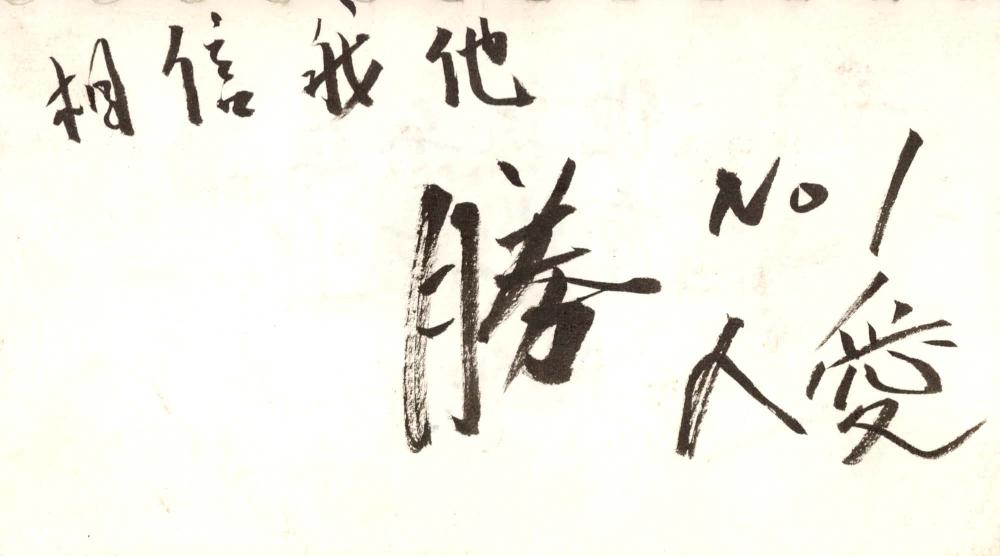 相信我他
勝
No 1
人愛